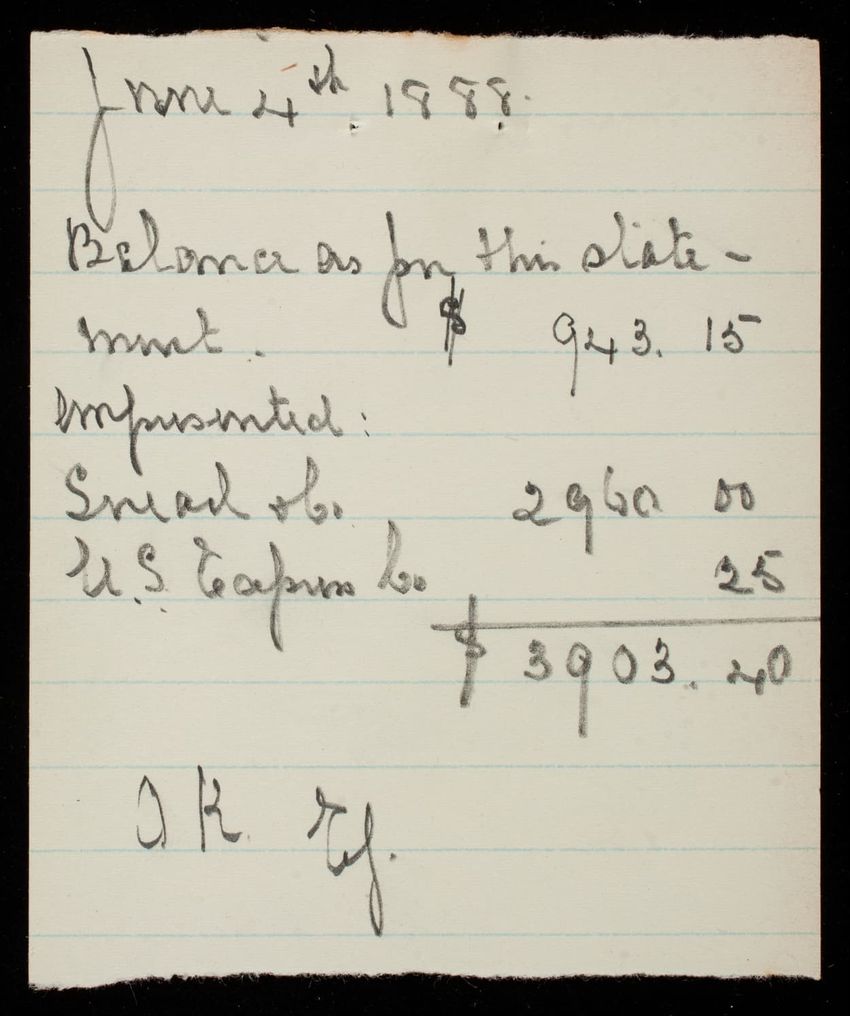 June 4th, 1888.
Balance as per this state-
ment. $ 943.15
Unpresented:
Snead & Co. 2960 00
U.S. Express Co 25
$ 3903.40
O K.